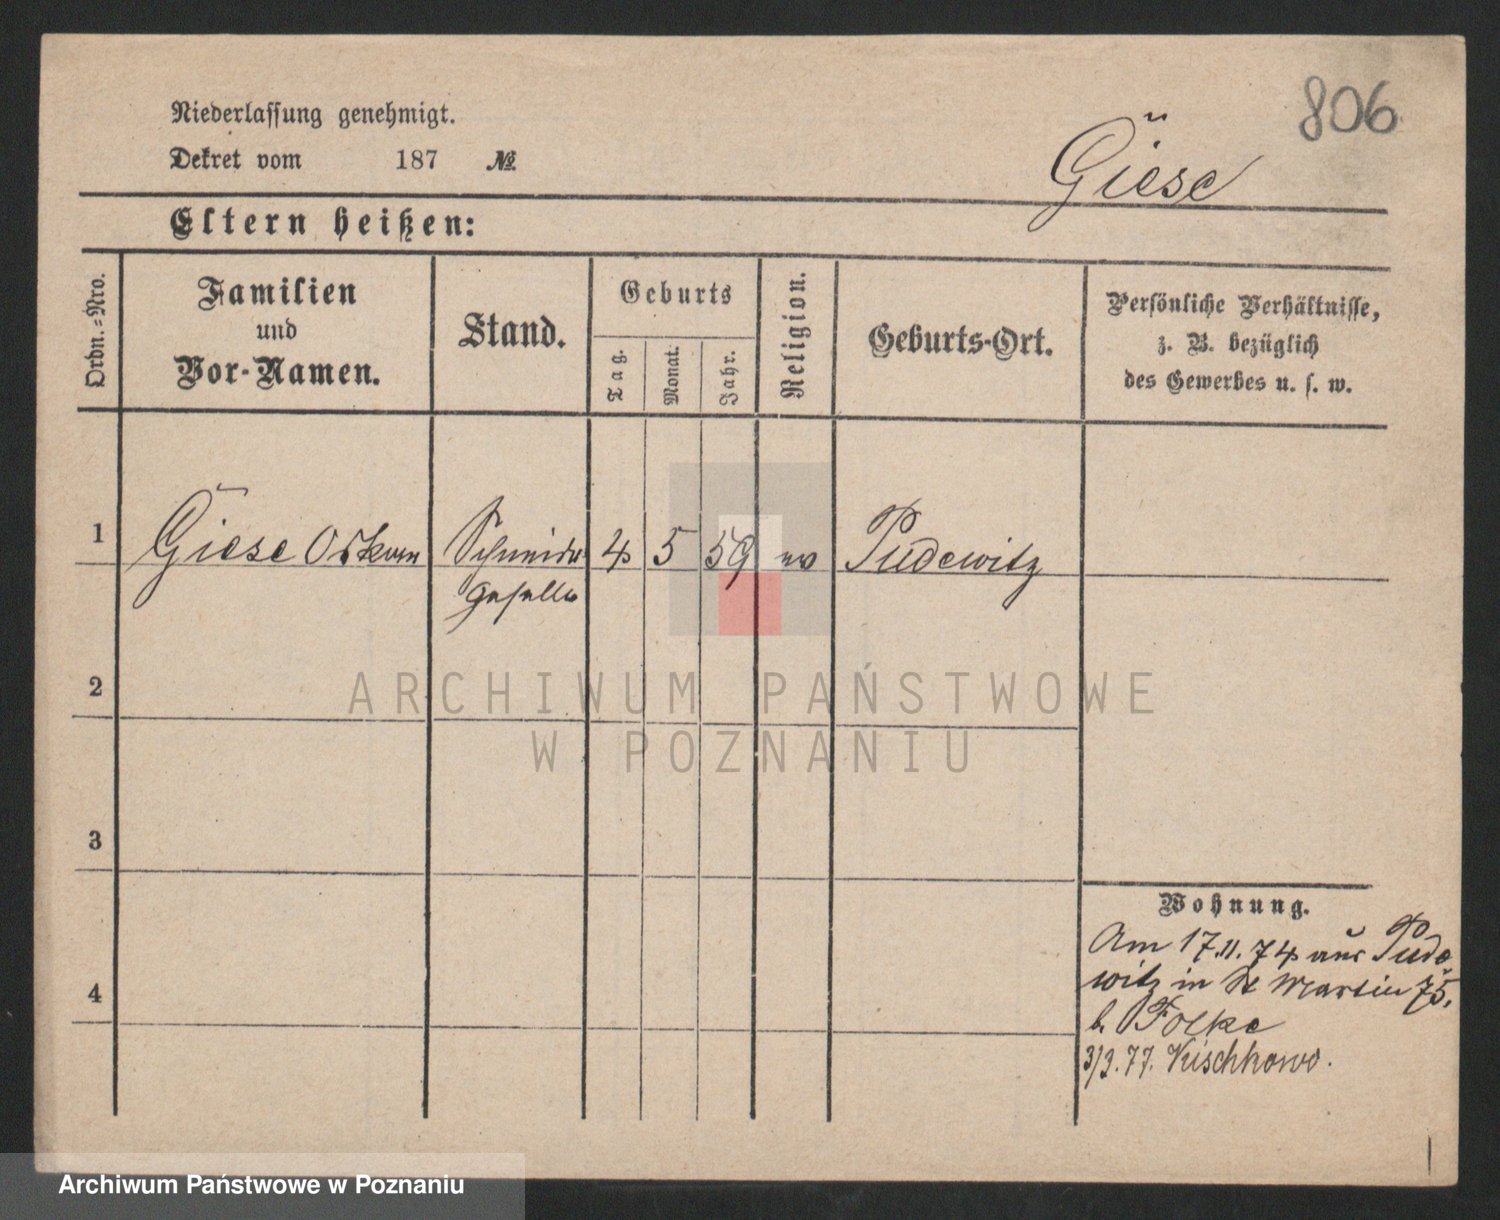 806
Niederlassung genehmigt.
Dekret vom 187 №
Giese
Eltern heißen:
Ordn.-Nro.
Familien
und
Vor-Namen.
Stand.
Geburts
Tag.
Monat.
Jahr.
Religion.
Geburts-Ort.
Persönliche Verhältnisse,
z. B. bezüglich
des Gewerbes u. s. w.
1 Giese Oskar Schneider 4 5 59 ev Pudewitz
geselle
2
3
4
Wohnung.
Am 17.11.74 aus Pude
witz in St Martin 75.
b. Folke
3/3.77. Kischkowo.
ARCHIWUM PAŃSTWOWE
W POZNANIU
Archiwum Państwowe w Poznaniu